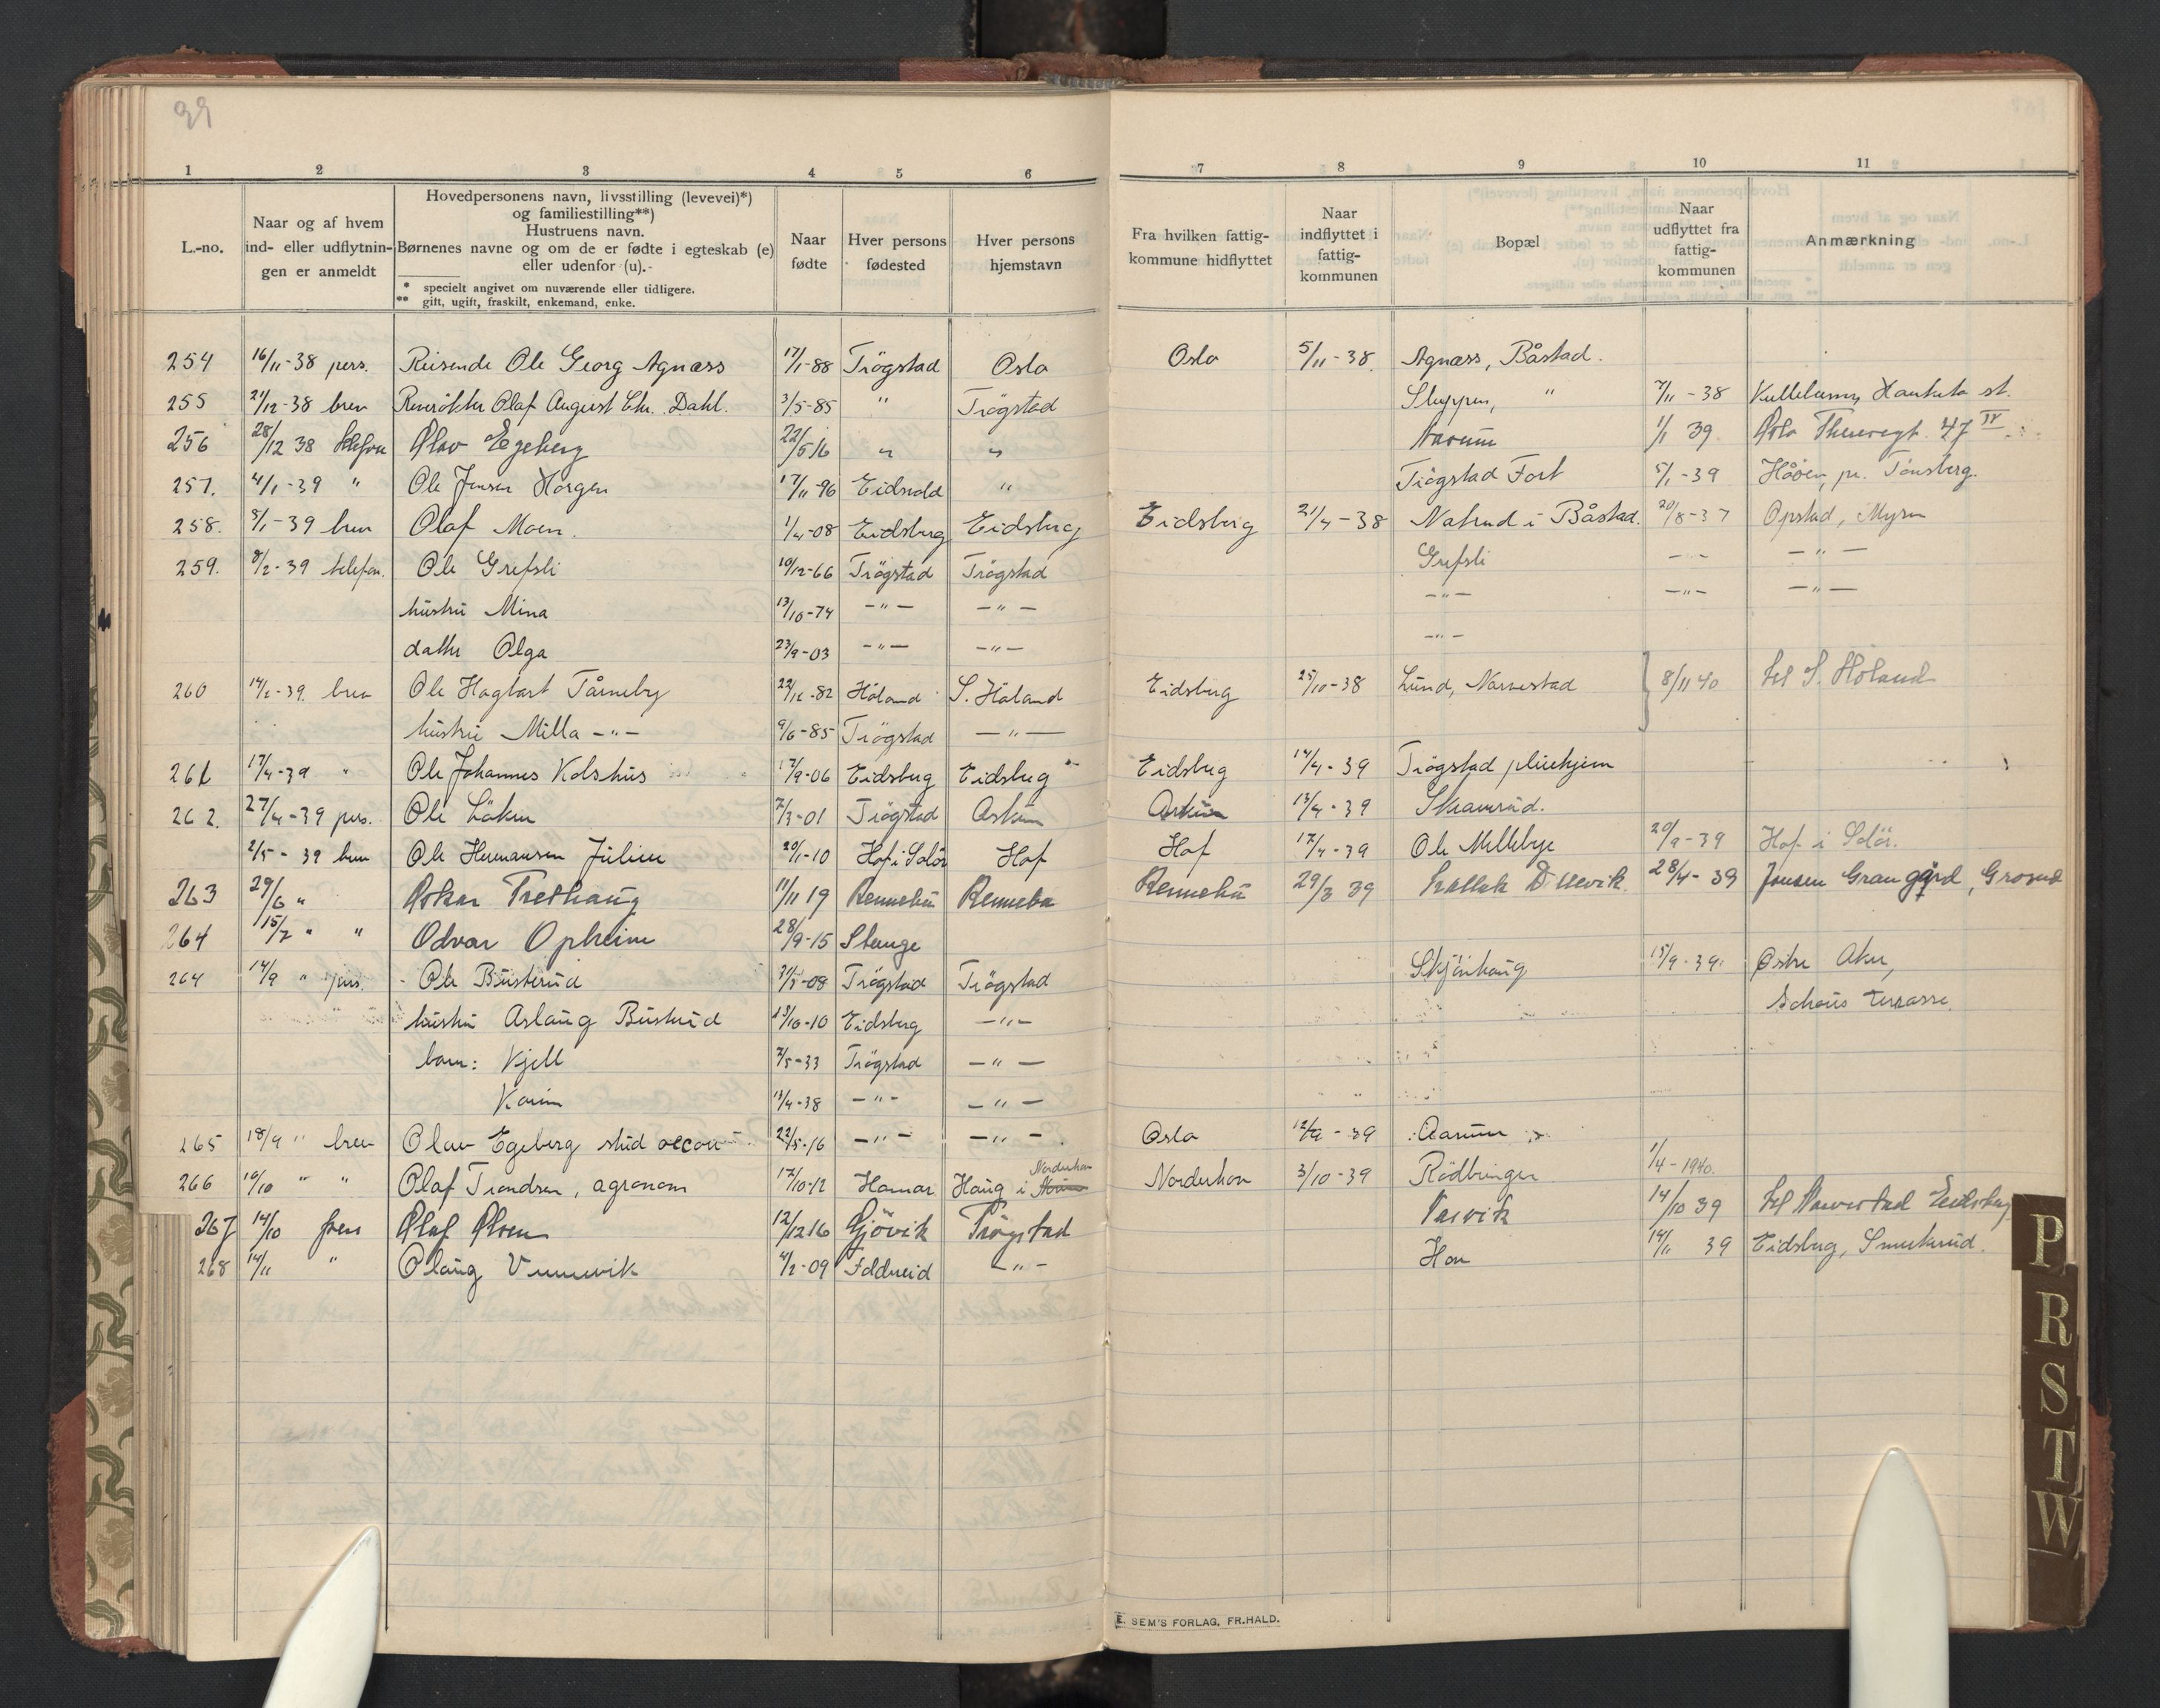 99
1 2 3 4 5 6 7 8 9 10 11
L.-no.
Naar og af hvem
ind- eller udflytnin-
gen er anmeldt
Hovedpersonens navn, livsstilling (levevei)*)
og familiestilling**)
Hustruens navn.
Børnenes navne og om de er fødte i egteskab (e)
eller udenfor (u).
* specielt angivet om nuværende eller tidligere.
** gift, ugift, fraskilt, enkemand, enke.
Naar
fødte
Hver persons
fødested
Hver persons
hjemstavn
Fra hvilken fattig-
kommune hidflyttet
Naar
indflyttet i
fattig-
kommunen
Bopæl
Naar
udflyttet fra
fattig-
kommunen
Anmærkning
254 16/11-38 pers. Reisende Ole Georg Agnæss 17/1-88 Trögstad Oslo Oslo 5/11-38. Agnæss, Båstad.
255 21/12-38 brev Olaf August Chr. Dahl. 3/5-85 " Trögstad " 7/11-38 st.
256 28/12 38 telefon Olav Egeberg 22/5 16 " " Aarum 1/1 39. Oslo 47 IV
257. 4/1-39 " Ole Jensen Horgen 17/11-96 Eidsvold " Trögstad Fort 5/1-39 pr. Tönsberg.
258. 3/1-39 brev Olaf Moen. 1/4-08 Eidsberg Eidsberg Eidsberg 21/4-38 i Båstad. 20/8-37 Opstad, Mysen
259. 8/2-39 telefon. Ole Grefsli 10/12-66 Trögstad Trögstad Grefsli -"- -"-
hustru Mina 13/10-74 -"- -"- -"- -"- -"-
datter Olga 23/9-03 -"- -"- -"-
260 brev Ole Hagbart Tårneby Höland S. Höland Eidsberg 25/10-38 Lund, Narvestad 8/11 40 til S. Höland
hustru Milla -"- 9/6-85 Trögstad -"-
261 17/4-39 " Ole Johannes Kolshus 17/9-06 Eidsberg Eidsberg Eidsberg 14/4-39 Trögstad pleiehjem
262. 27/4-39 pers. Ole Löken 7/3-01 Trögstad Askim Askim 13/4-39 Skamrud.
2/5-39 brev Ole Hermansen Julien 20/1-10 Hof i Solör Hof Hof 17/4-39 Ole Millebye 20/9-39 Hof i Solör.
263 29/6 " Oskar Trethaug 11/11 19 Rennebu Rennebu Rennebu 29/3 39 28/4-39 Jensen Grangård, Grorud
264 15/7 " " Odvar Opheim 28/9-15 Stange
264 14/9 " pers. Ole Busterud Trögstad Trögstad Skjönhaug 15/9-39. Östre Aker,
hustru Aslaug Busterud 13/10-10 Eidsberg -"- Schous terrasse.
barn: Kjell 7/5-33 Trögstad -"-
Karin 13/4-38 -"- -"-
265 18/9 " brev Olav Egeberg stud oecon 22/5-16 -"- -"- Oslo 12/9-39 Aarum
266 10/10 " " Olaf Trondsen, agronom 17/10-12 Hamar Haug i Norderhov Norderhov 3/10-39 Rödbringen 1/4-1940.
267 14/10 brev Olaf Olsen 12/12 16 Gjövik Trögstad 14/10 39 til Narvestad Eidsberg
268 14/11 " Olaug 4/2-09 -"- Hov 14/11 39 Eidsberg, Smerkerud.
E. SEM'S FORLAG, FR.HALD.
P
R
S
T
W